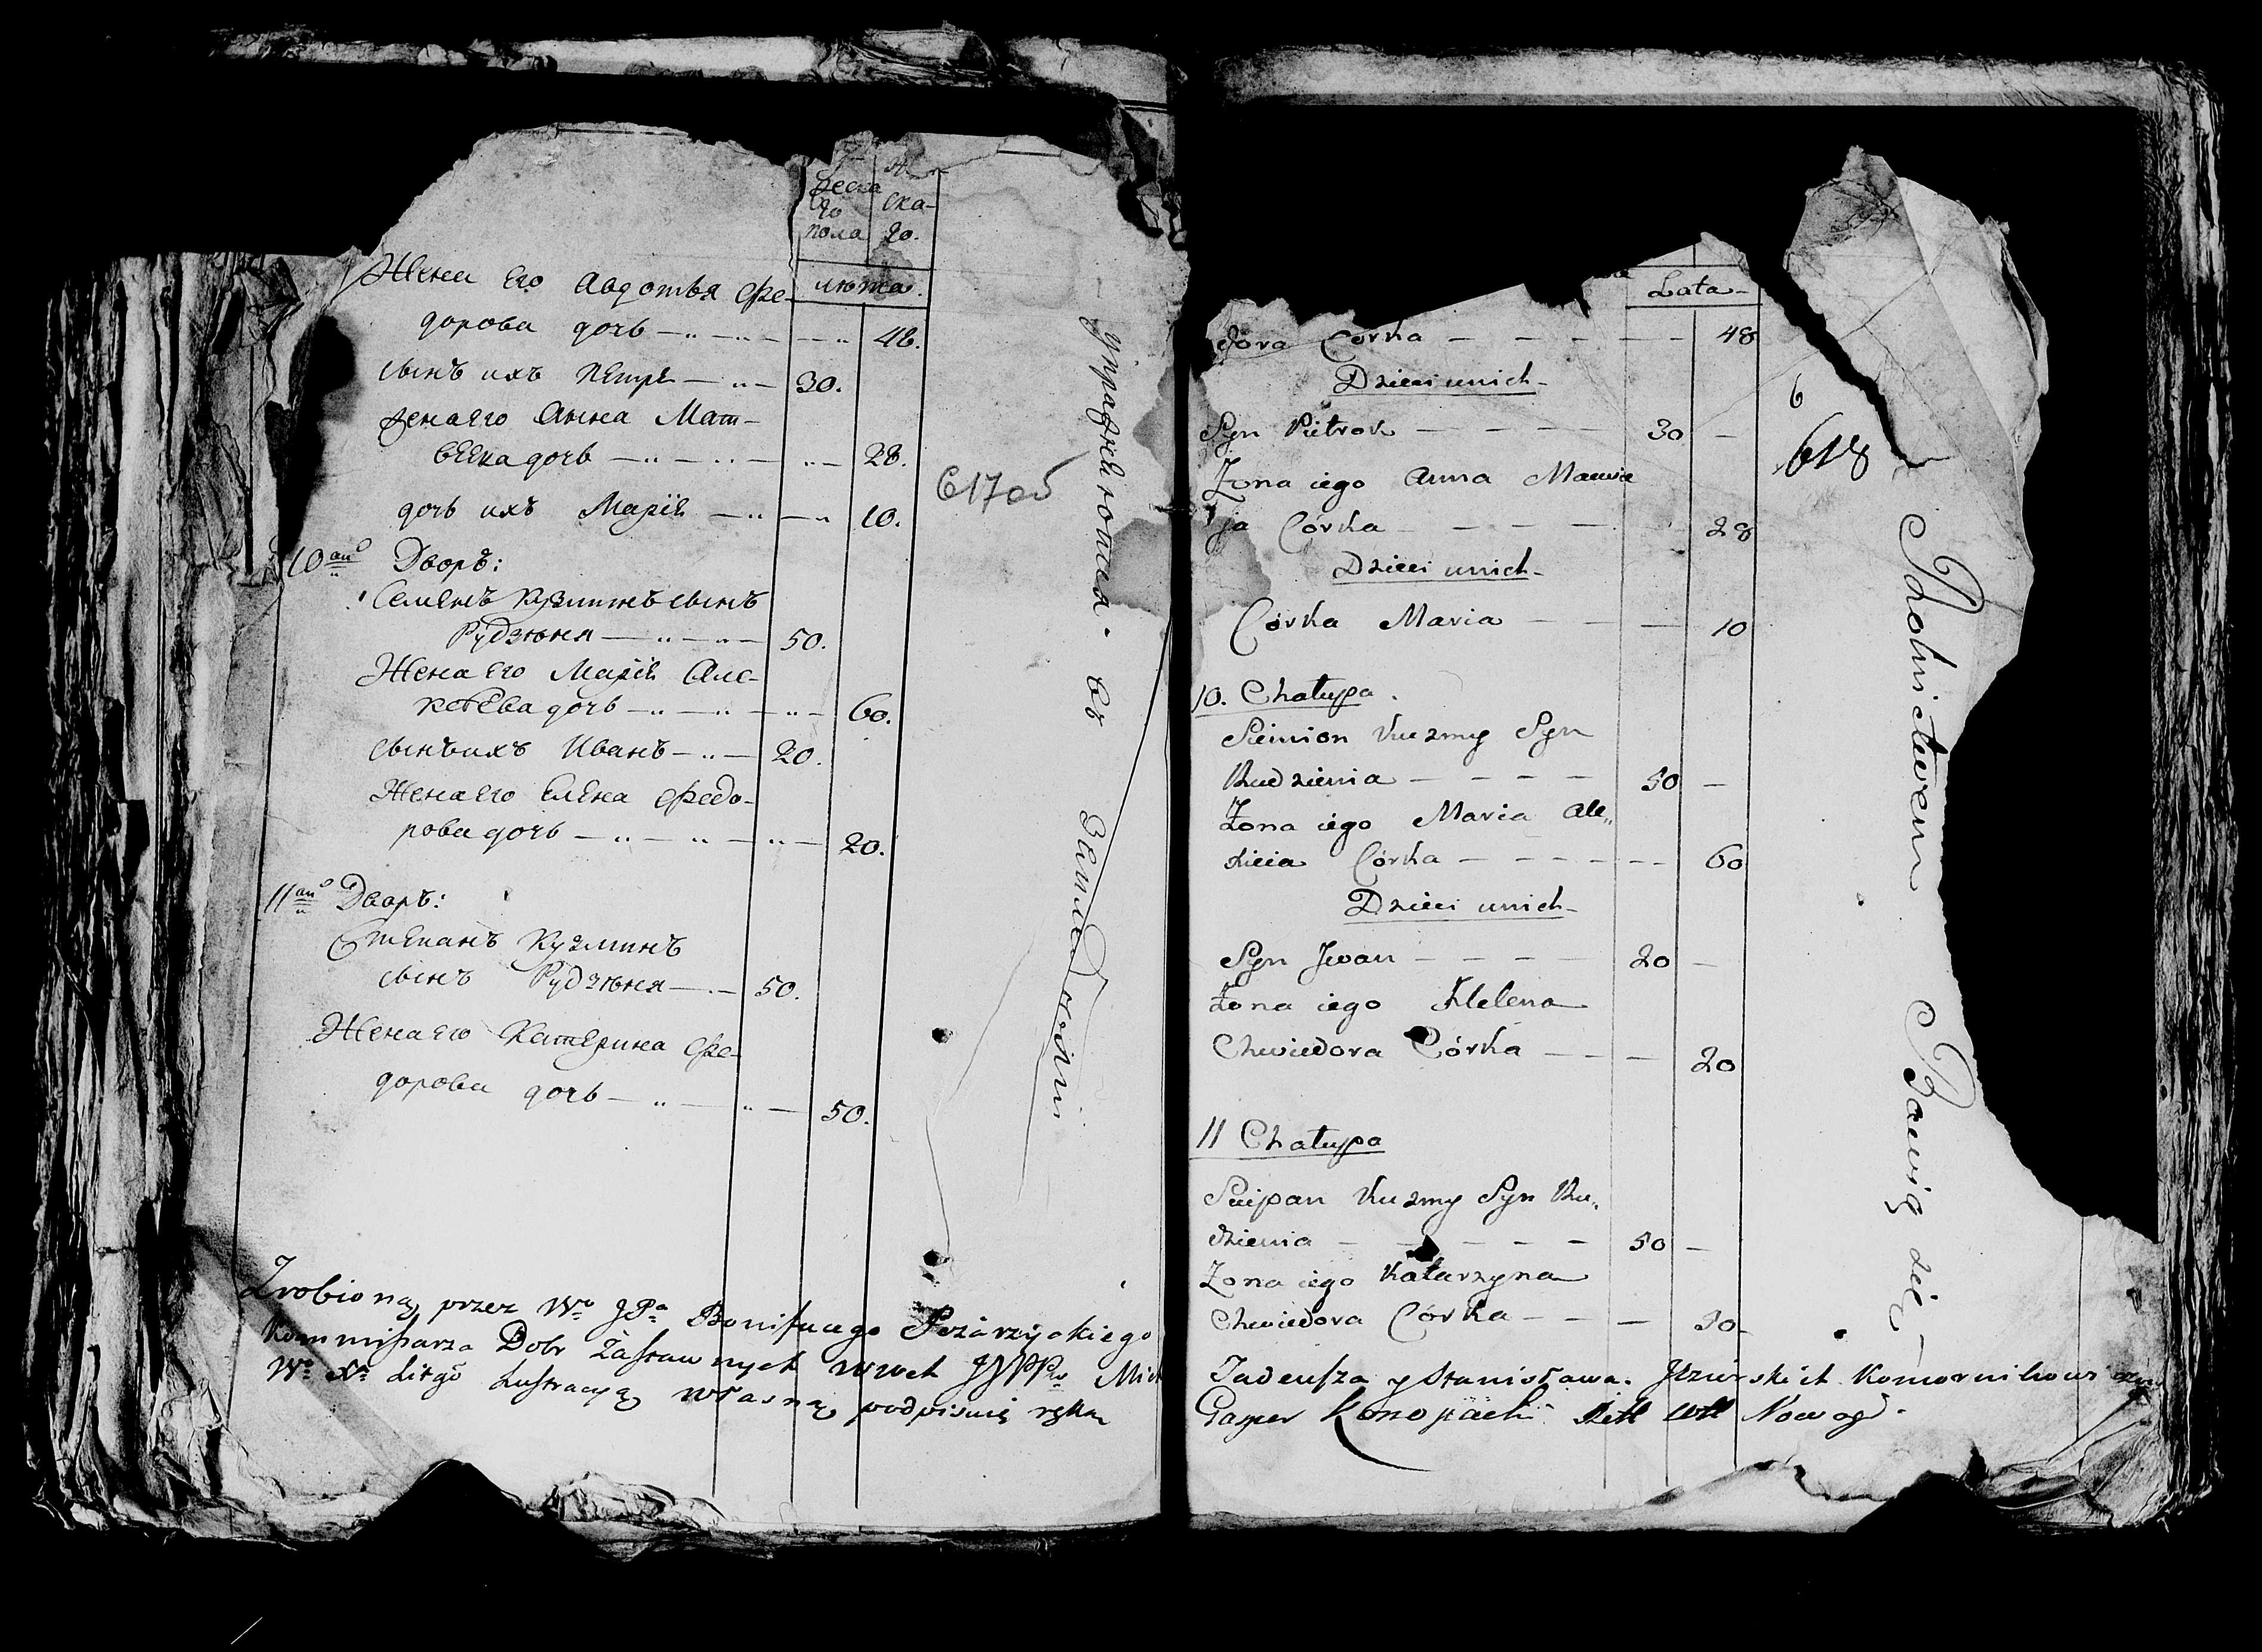 ческа
го ска-
пола го.
люта.
Жена Его Авдотья Фе-
дорова дочь 48.
сынъ ихъ Петръ 30.
женаЕго Анна Мат-
веева дочь 28.
дочь ихъ Марія 10.
10 Дворъ:
Семенъ Кузминъ сынъ
Рудзюня 50.
Жена Его Марія Але-
ксеева дочь 60.
сынъ ихъ Иванъ 20.
Жена Его Елена Федо-
рова дочь 20.
11 Дворъ:
Степанъ Кузминъ
сынъ Рудзюня 50.
Жена Его Катерина Фе-
дорова дочь 50.
617об
упражняюпся въ
Zrobioną przez Wo JPa Bonifacego Pożarzyckiego
Kommissarza Dobr Zastawnych WWch JJPPw Mich
Lustracyą własną podpisuię ręką
Lata
dora Corka 48
Dzieci unich
Syn Pietrok 30
Zona iego Anna Macwie
ja Córka 28
Dzieci unich
Córka Maria 10
10. Chałupa.
Siemion Kuzmy Syn
Rudzienia 50
Zona iego Maria Ale„
xieia Córka 60
Dzieci unich
Syn Jwan 20
Zona iego Helena
Chwiedora Córka 20
11 Chałupa
Sciepan Kuzmy Syn Ru„
dzienia 50
Zona iego Katarzyna
Chwiedora Córka 50
6
618
Rolnictwem Bawią się
Tadeusza y Stanisława
Gasper Konopacki Nowogr.